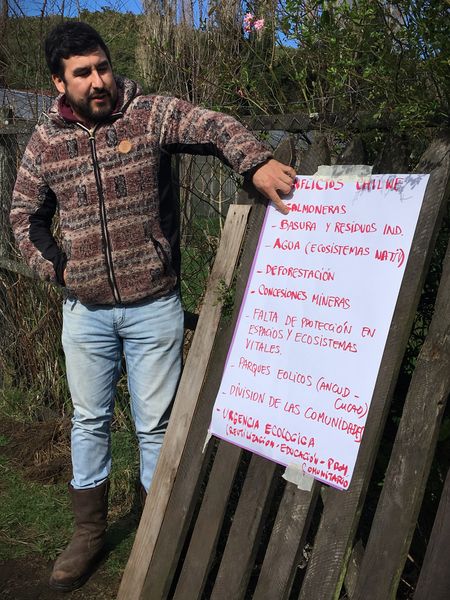 CHILWE
SALMONERAS
- BASURA Y RESIDUOS IND.
- AGUA (ECOSISTEMAS
- DEFORESTACIÓN
- CONCESIONES MINERAS
- FALTA DE PROTECCIÓN EN
ESPACIOS Y ECOSISTEMAS
VITALES.
- PARQUES EOLICOS (ANCUD -
CUCAO)
- DIVISION DE LAS COMUNIDADES
- URGENCIA ECOLOGICA
(REUTILIZACIÓN - EDUCACIÓN -
COMUNITARIO